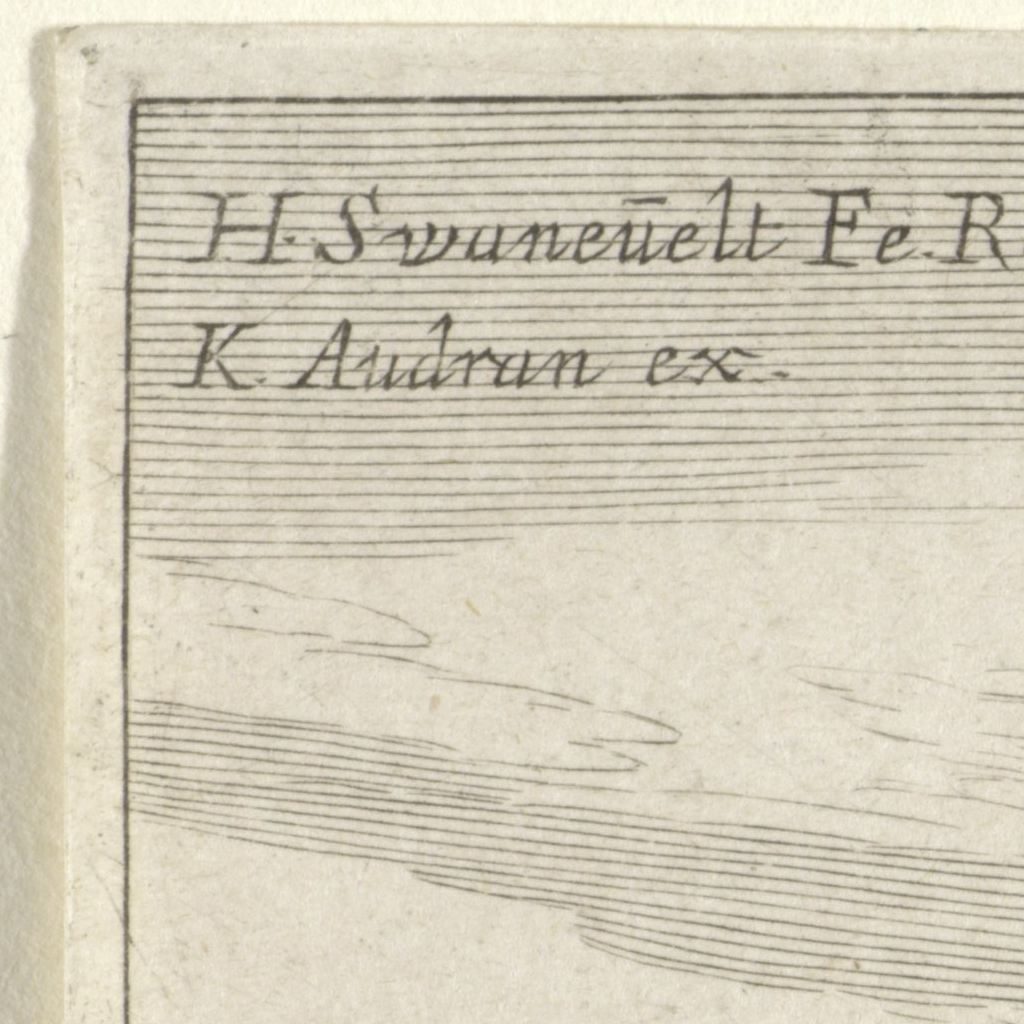 H. Swaneūelt Fe. R
K. Audran ex.